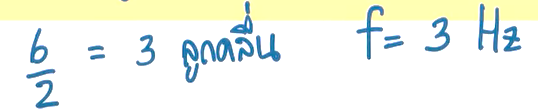 6/2 = 3 ลูกคลื่น f = 3 Hz